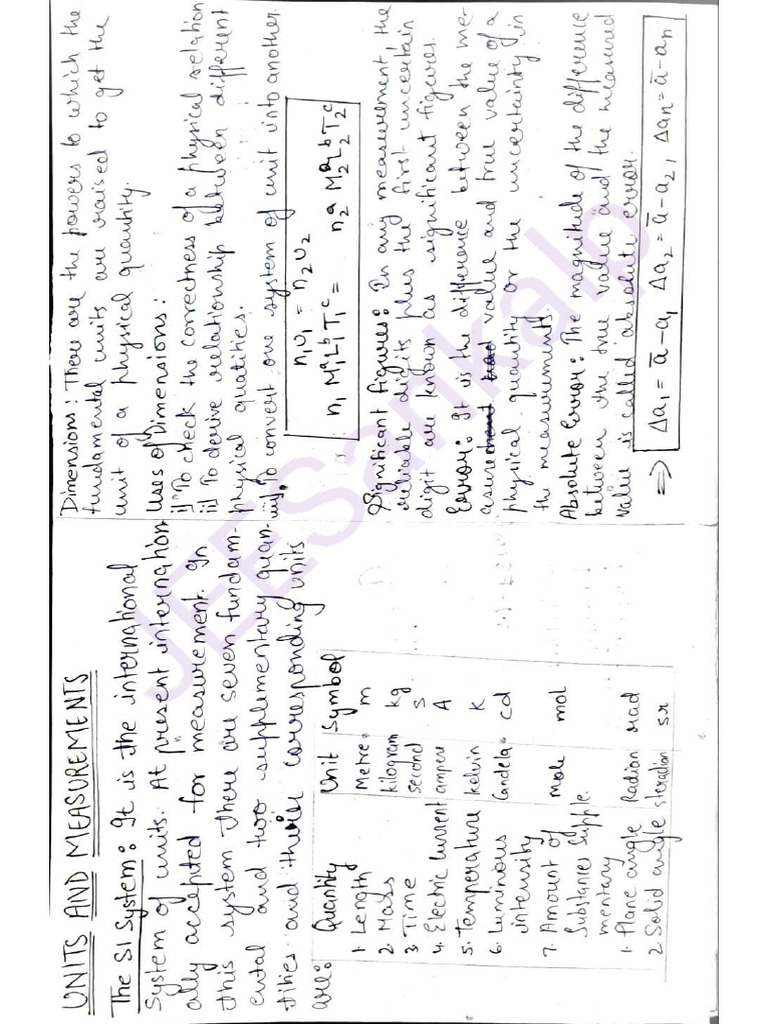 UNITS AND MEASUREMENTS
The SI System: It is the international
System of units. At present internation
ally accepted for measurement. In
this system there are seven fundam-
ental and two supplementary quan-
tities and their corresponding units
are:
Quantity Unit Symbol
1. Length Metre m
2. Mass kilogram kg
3. Time second s
4. Electric Current ampere A
5. Temperature kelvin K
6. Luminous Candela cd
intensity
7. Amount of mole mol
Substances Supple.
mentary
1. Plane angle Radian rad
2. Solid angle steradian sr
Dimensions: There are the powers to which the
fundamental units are raised to get the
unit of a physical quantity.
Uses of Dimensions:
i) To check the correctness of a physical relation
ii) To derive relationship between different
physical quatities.
iii) To convert one system of unit into another.
n₁u₁ = n₂u₂
n₁ M₁ᵃL₁ᵇT₁ᶜ = n₂ᵃ M₂ᵃL₂ᵇT₂ᶜ
Significant figures: In any measurement, the
reliable digits plus the first uncertain
digit are known as significant figures.
Error: It is the difference between the me-
asure value and true value of a
physical quantity or the uncertainty in
the measurements.
Absolute Error: The magnitude of the difference
between the true value and the measured
value is called absolute error.
⇒ Δa₁ = a̅ - a₁, Δa₂ = a̅ - a₂, Δan = a̅ - an
JEESankalp